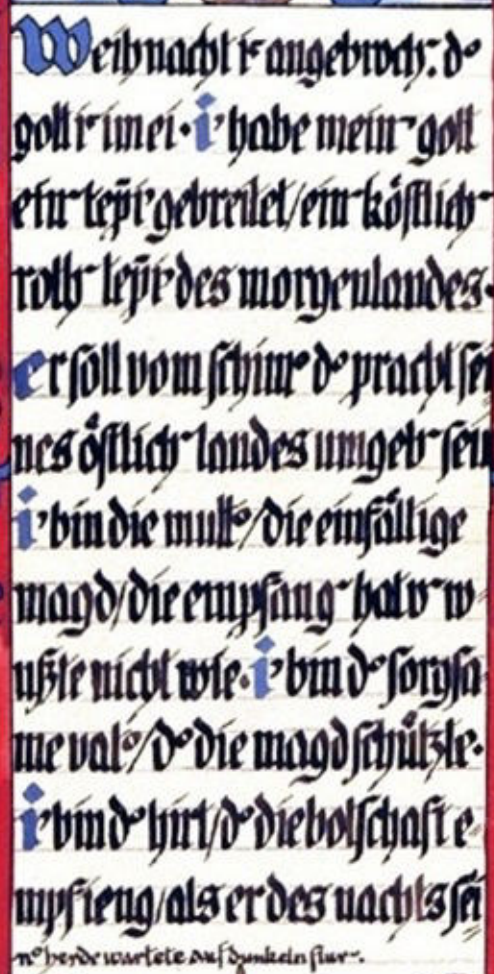 Weihnacht iſt angebroch: d'
gott iſt im ei. i' habe mein gott
ein tepp̄i' gebreitet/ein köſtlich
roth tepp̄i' des morgenlandes.
er ſoll vom ſchim̄' d' pracht ſei
nes öſtlich landes umgeb ſein
i' bin die mutt'/die einfällige
magd/die empfang hat v w
uſzte nicht wie. i' bin d' ſorgſa
me vat'/d' die magd ſchützte.
i' bin d' hirt/d' die botſchaft e
mpfieng/als er des nachts ſei
n' herde wartete auf dunkeln flur.